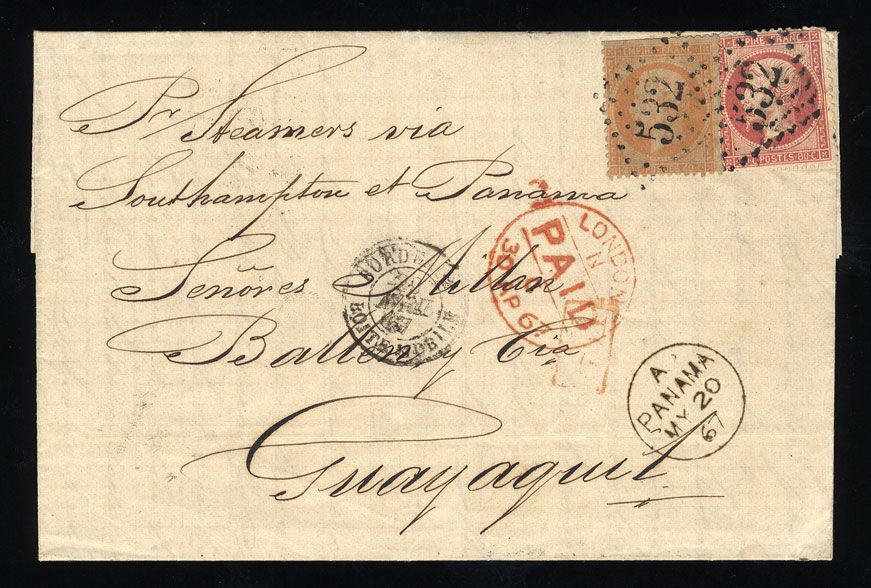 EMPIRE FRANC
EMPIRE FRANC
532
532
POSTES 80 C
Pr Steamers via
Southampton et Panama
Señores Millan
Ballen y Cia
Guayaquil
LONDON
N
PAID
30 AP 6
BORDE
67
BOITE MOBILE
A
PANAMA
MY 20
67